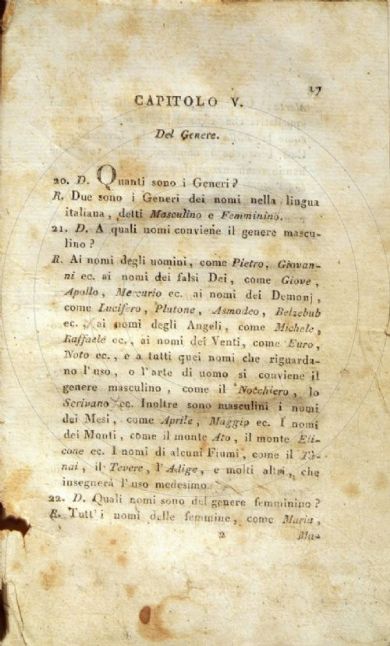 17
CAPITOLO V.
Del Genere.
20. D. Quanti sono i Generi?
R. Due sono i Generi dei nomi nella lingua
italiana, detti Masculino e Femminino.
21. D. A quali nomi conviene il genere mascu-
lino?
R. Ai nomi degli uomini, come Pietro, Giovan-
ni ec. ai nomi dei falsi Dei, come Giove,
Apollo, Mercurio ec. ai nomi dei Demonj,
come Lucifero, Plutone, Asmodeo, Belzebub
ec., ai nomi degli Angeli, come Michele,
Raffaele ec., ai nomi dei Venti, come Euro,
Noto ec., e a tutti quei nomi che riguarda-
no l'uso, o l'arte di uomo si conviene il
genere masculino, come il Nocchiero, lo
Scrivano ec. Inoltre sono masculini i nomi
dei Mesi, come Aprile, Maggio ec. I nomi
dei Monti, come il monte Ato, il monte Eli-
cone ec. I nomi di alcuni Fiumi, come il Ta-
nai, il Tevere, l'Adige, e molti altri, che
insegnerà l'uso medesimo.
22. D. Quali nomi sono del genere femminino?
R. Tutt'i nomi delle femmine, come Maria,
2
Mar-